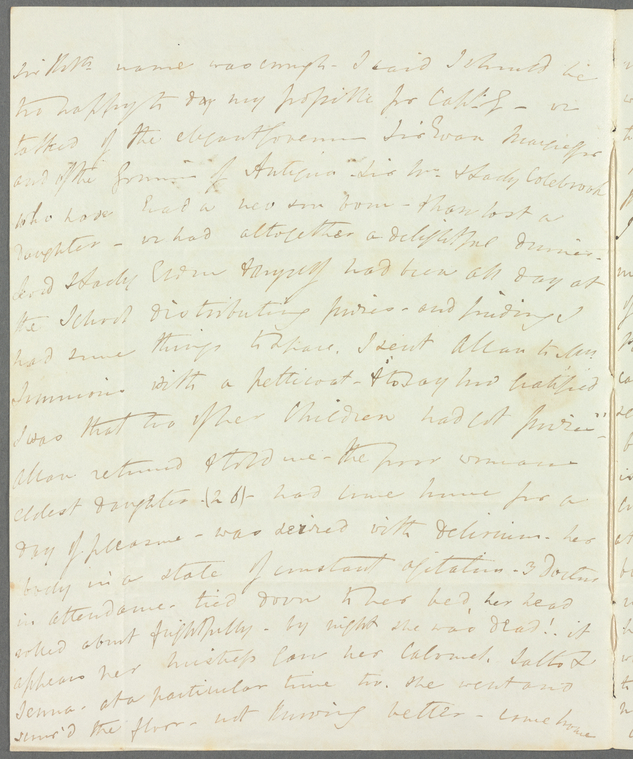 name was enough - I said I should be
too happy to day my for Capt. - we
talked of the elegant Sir Evan
and of the of Antigua - Sir Wm & Lady Colebrook
who have had a new son born - & have lost a
Daughter - we had altogether a delightful dinner -
Lord & Lady & myself had been all day at
the School distributing prizes - and finding I
had some things to spare, I sent Allan to Mrs
Simmons with a petticoat - & to say how gratified
I was that two of her Children had got prizes" -
Allan returned & told me - the poor womans
eldest daughter (26) - had come home for a
day of pleasure - was seized with delirium - her
body in a state of constant agitation - 3 Doctors
in attendance - tied down to her bed, her head
rolled about frightfully - by night she was dead! it
appears her mistress gave her Calomel, Salts &
Senna - at a particular time too. She went and
scour'd the floor - not knowing better - came home